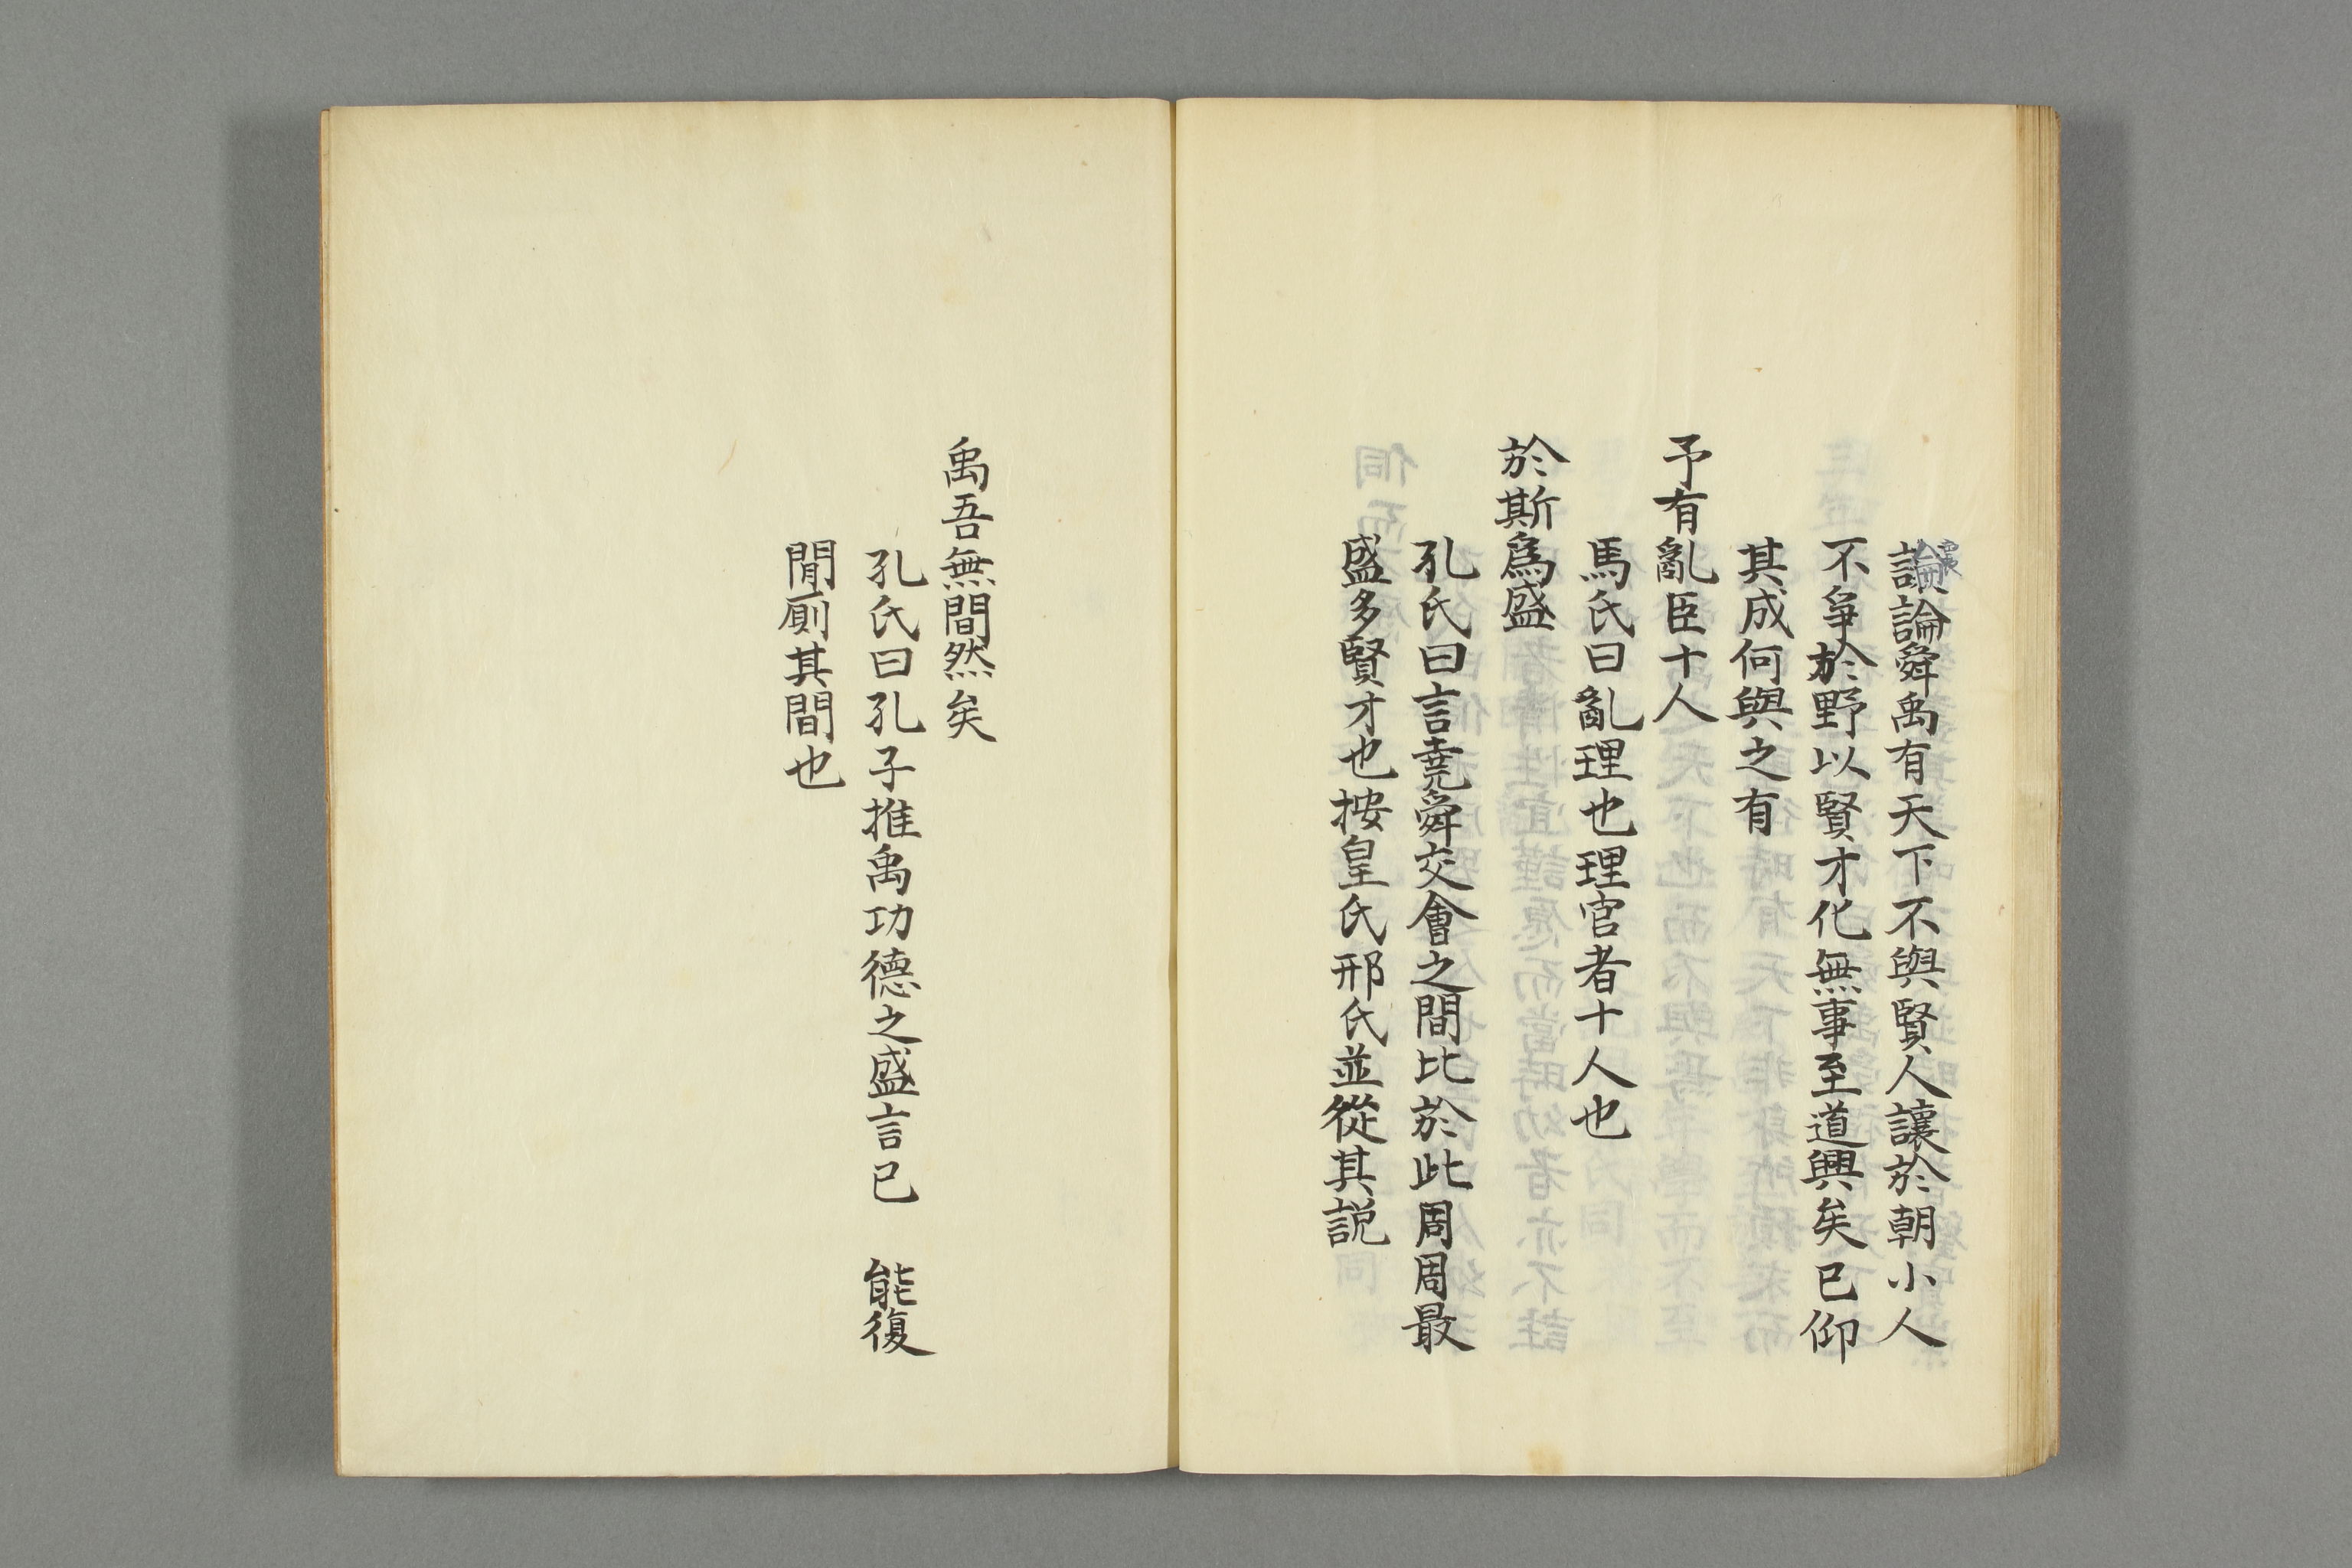 論舜禹有天下不與賢人讓於朝小人
不爭於野以賢才化無事至道興矣已仰
其成何與之有
予有亂臣十人
馬氏曰亂理也理官者十人也
於斯爲盛
孔氏曰言堯舜交會之間比於此周周最
盛多賢才也按皇氏邢氏並從其説
禹吾無間然矣
孔氏曰孔子推禹功德之盛言已 能復
閒厠其間也